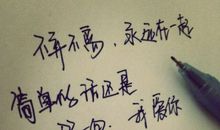 不弃不离，永远在一起
简单的话还是
那句：我爱你